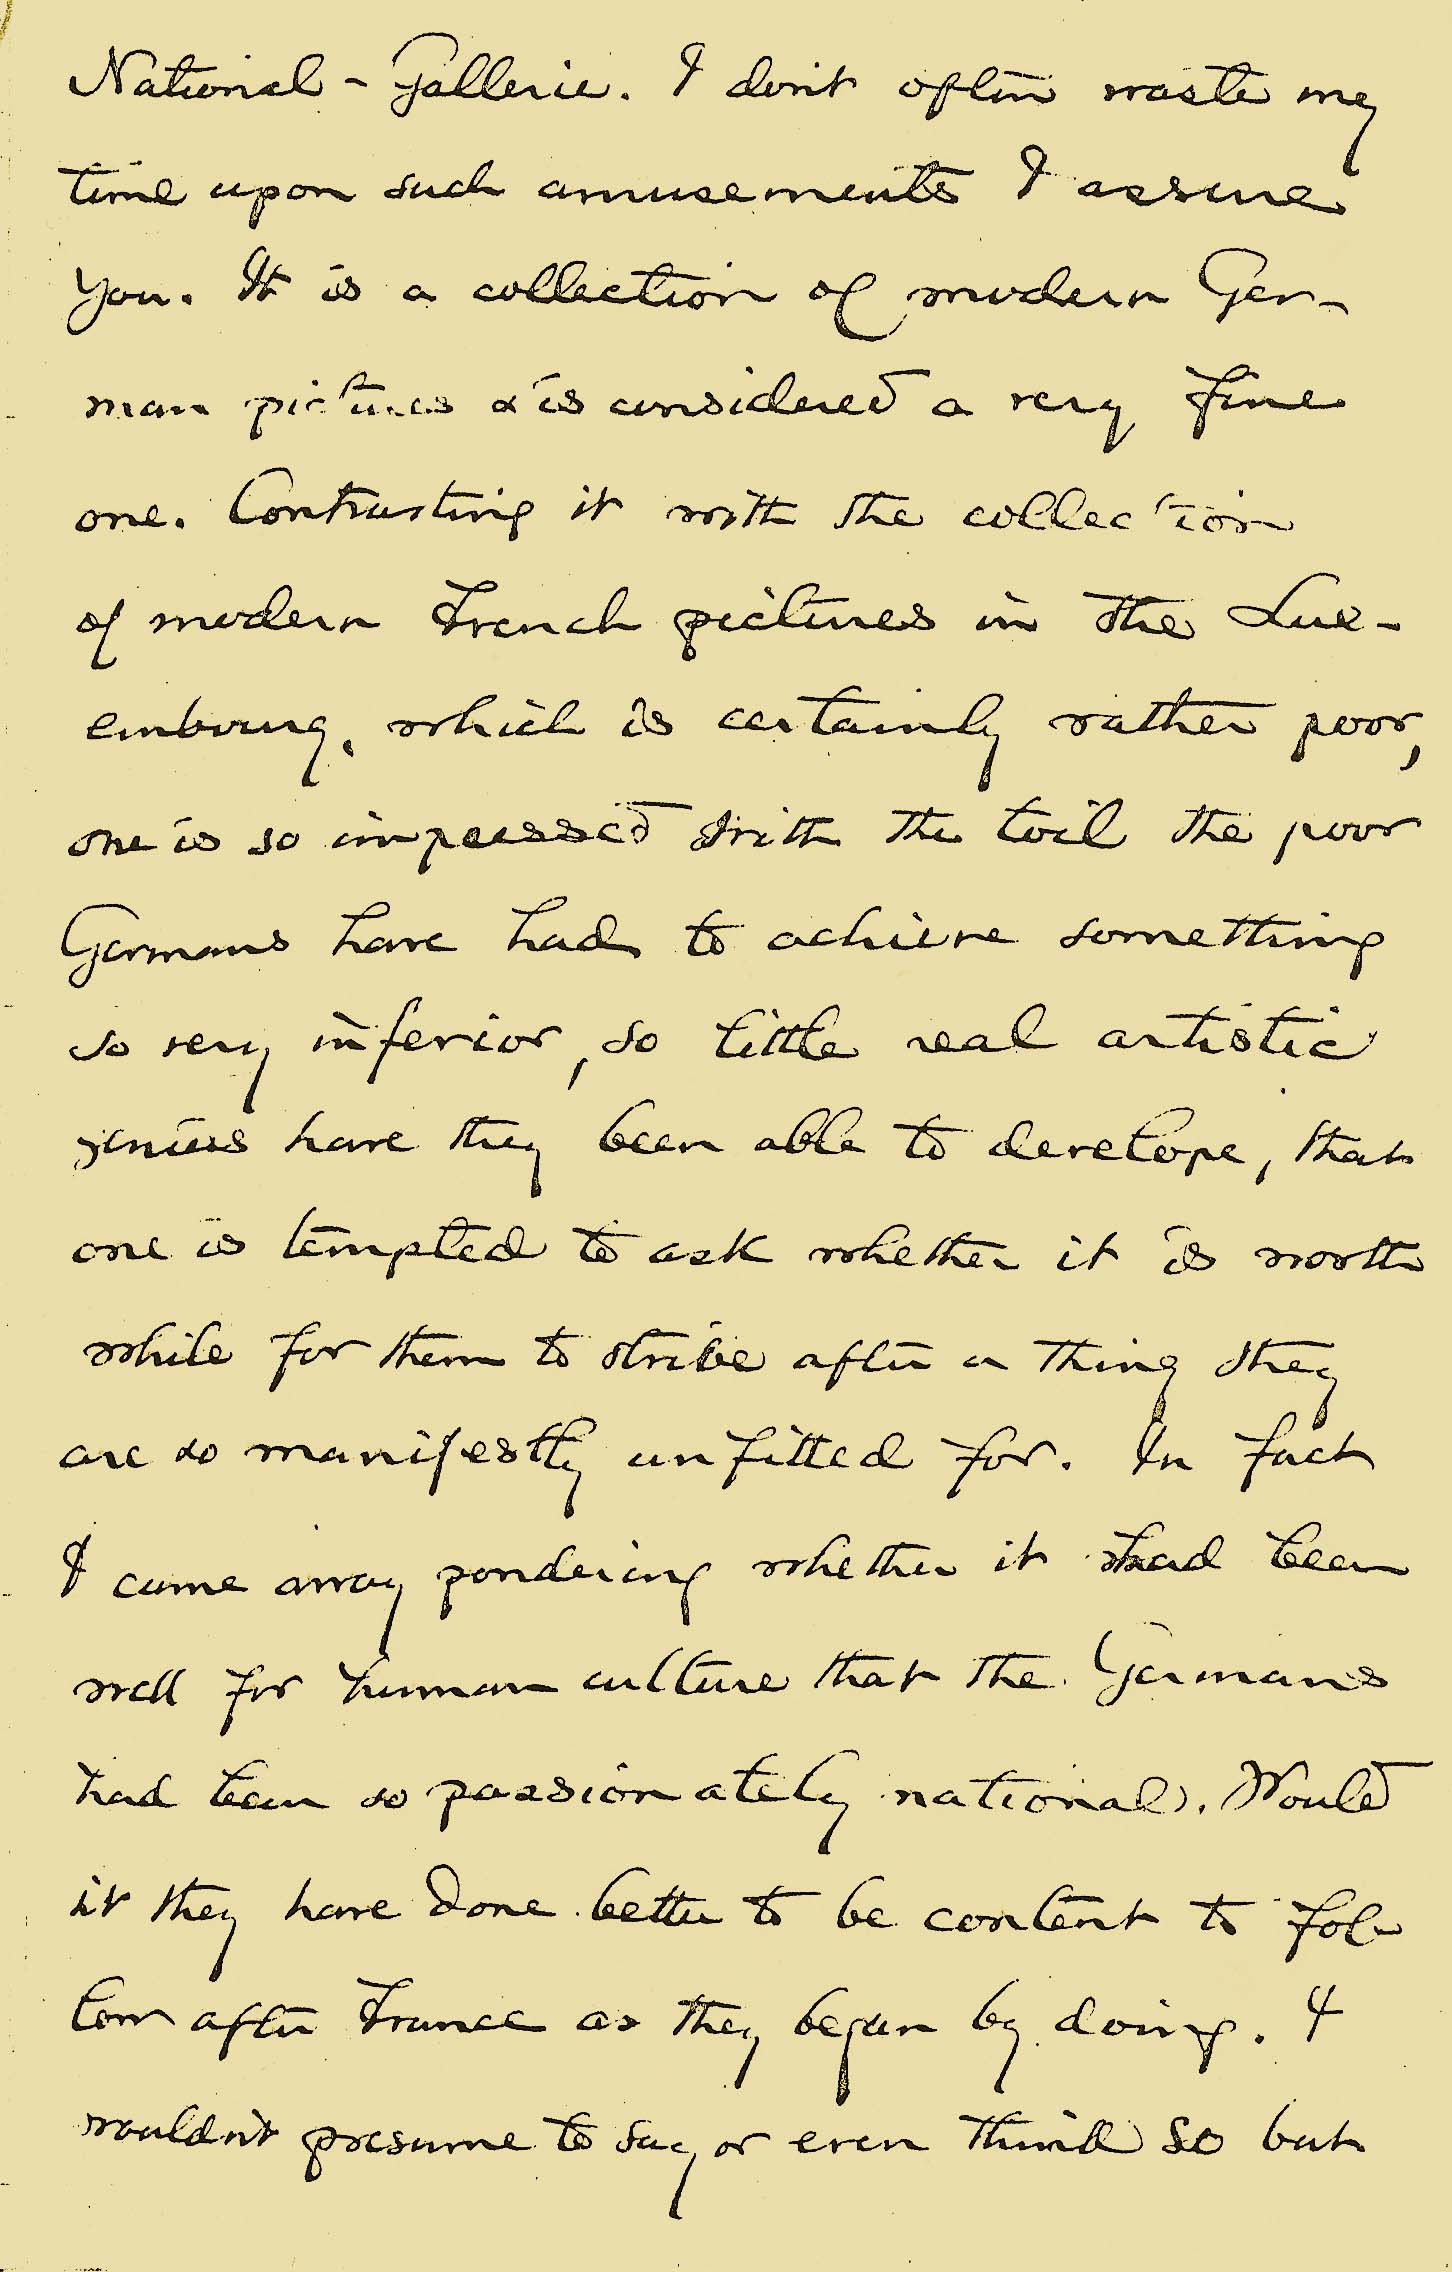 National-Gallerie. I don't often waste my
time upon such amusements I assure
you. It is a collection of modern Ger-
man pictures & is considered a very fine
one. Contrasting it with the collection
of modern French pictures in the Lux-
embourg, which is certainly rather poor,
one is so impressed with the toil the poor
Germans have had to achieve something
so very inferior, so little real artistic
genius have they been able to develope, that
one is tempted to ask whether it is worth
while for them to strive after a thing they
are so manifestly unfitted for. In fact
I came away pondering whether it had been
well for human culture that the Germans
had been so passionately national. Would
it they have done better to be content to fol-
low after France as they began by doing. I
wouldn't presume to say or even think so but